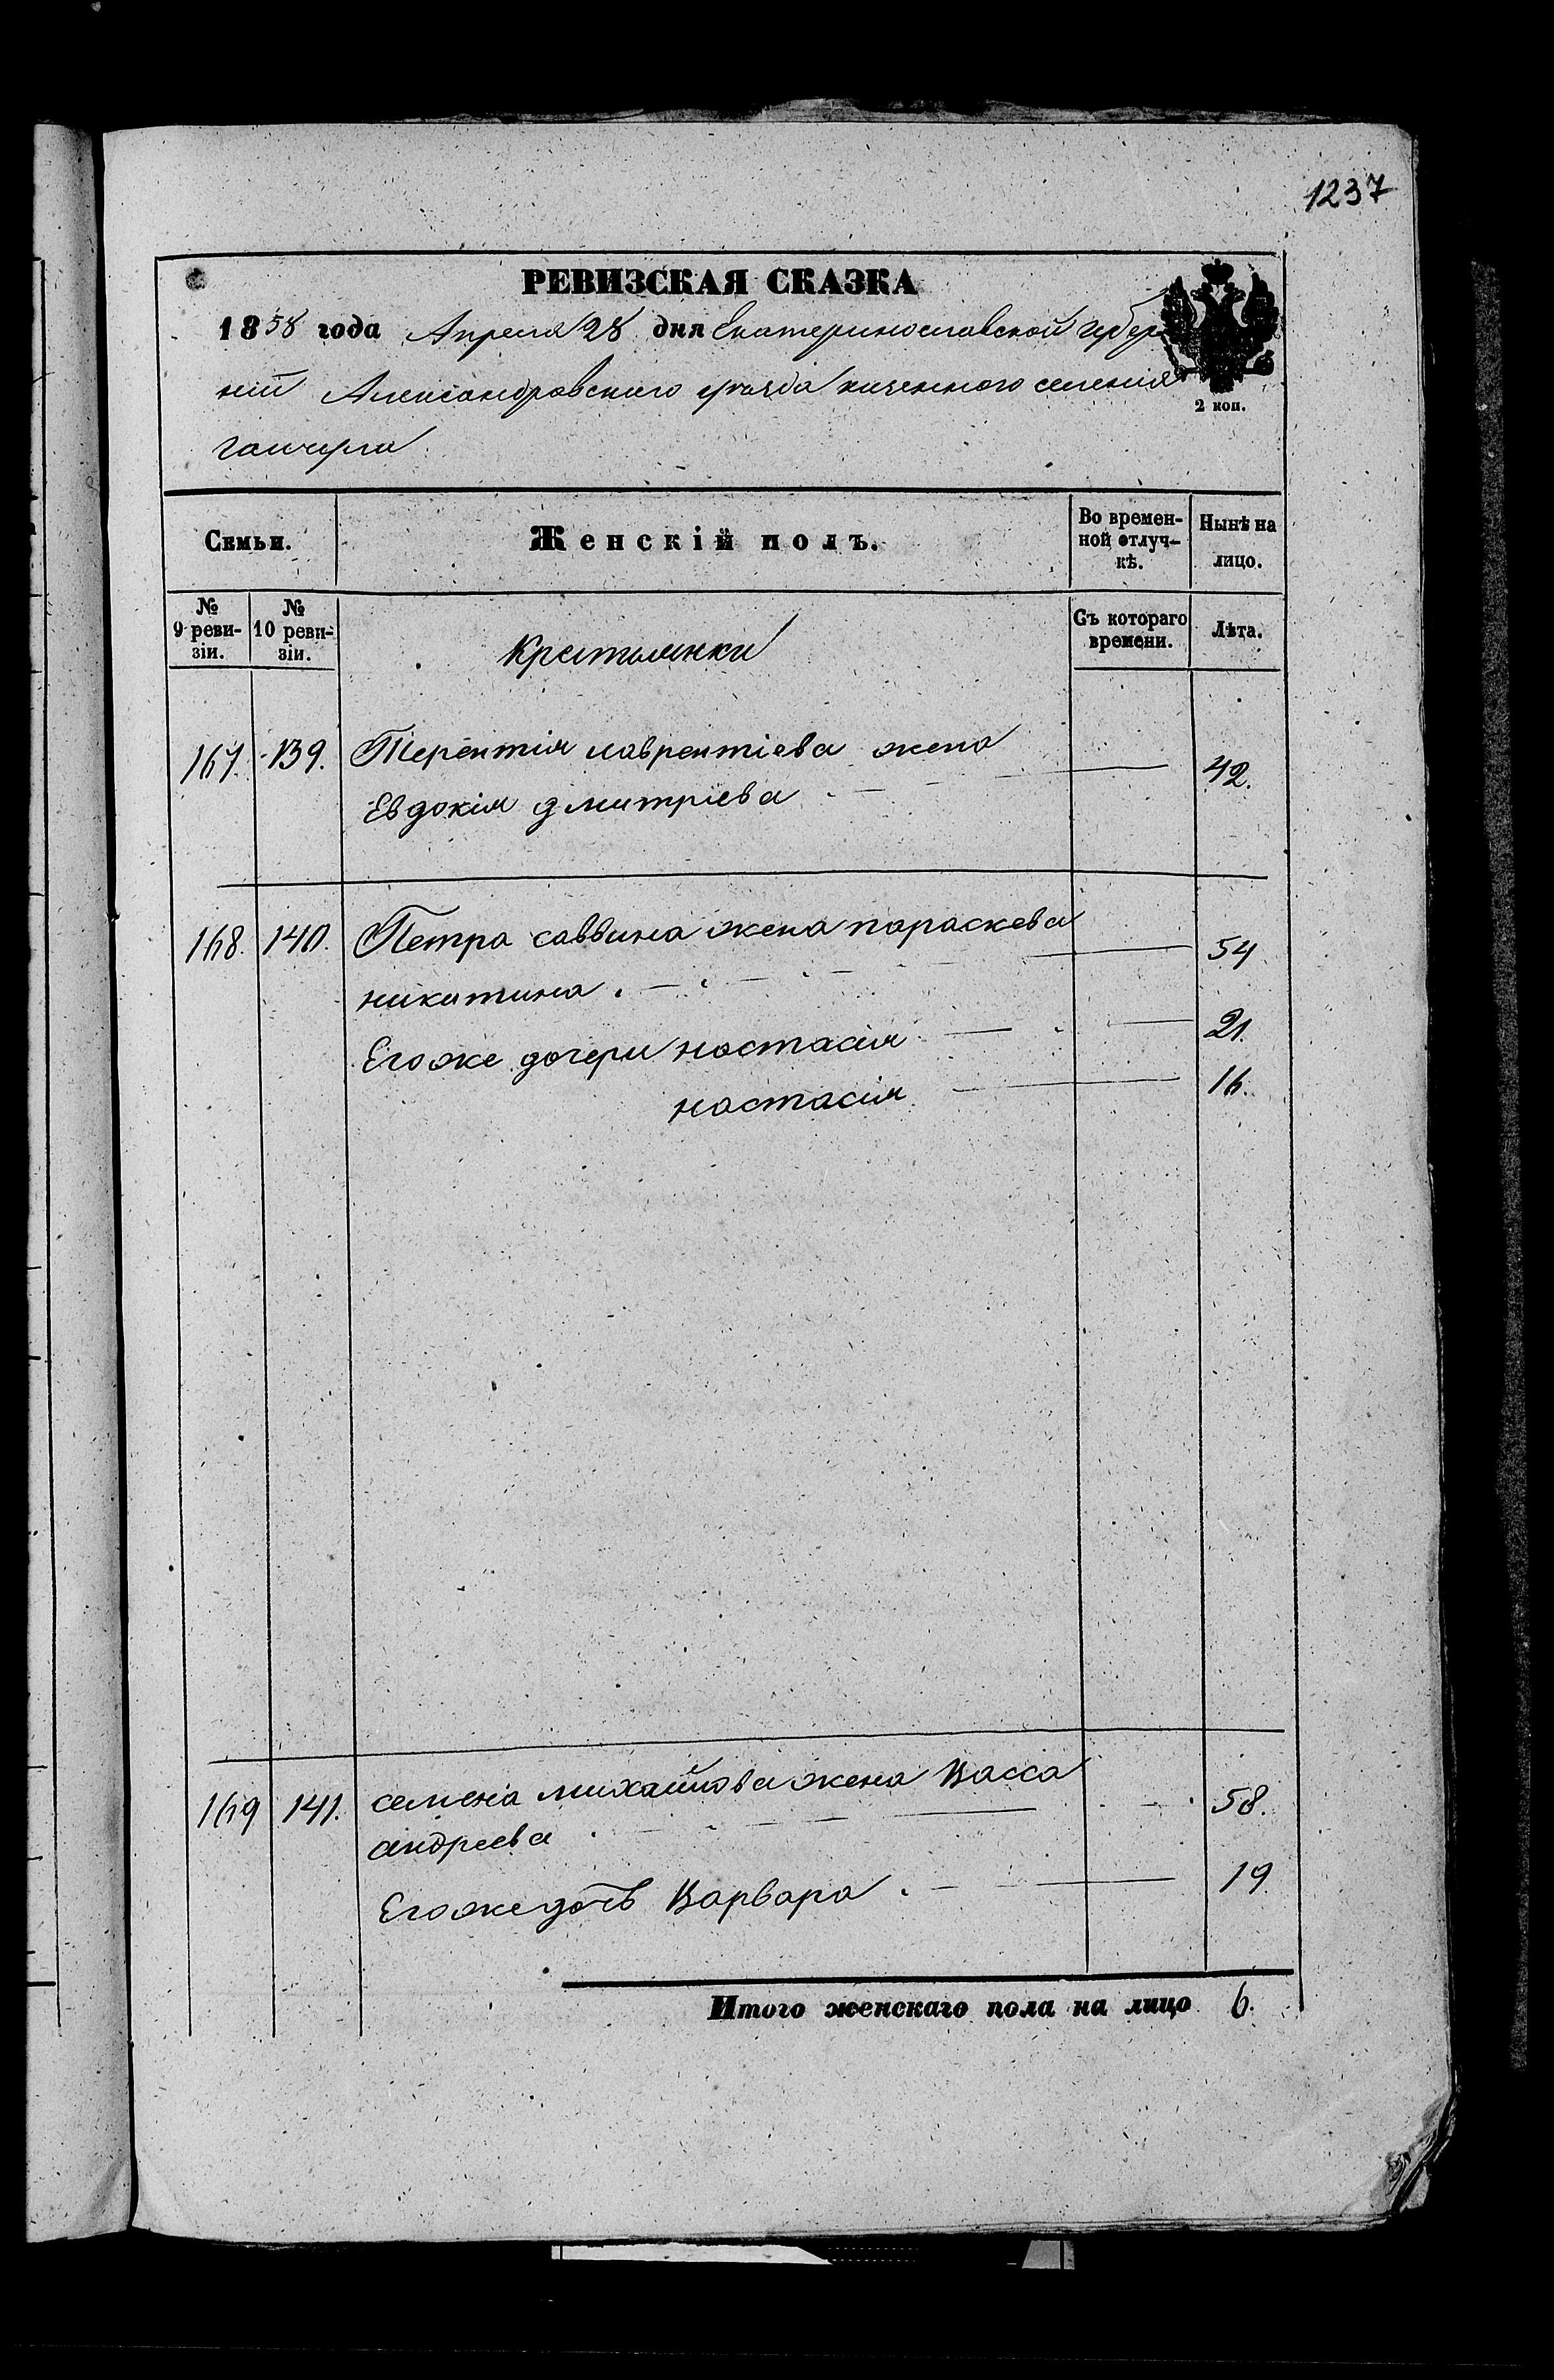 1237
РЕВИЗСКАЯ СКАЗКА
1858 года Апреля 28 дня Екатеринославской губер
ній Александровского уезда казенного селенія
2 коп.
гайчула
Семьи.
Женскій полъ.
Во времен-
ной отлуч-
кѣ.
Нынѣ на
лицо.
№
9 реви-
зіи.
№
10 реви-
зіи.
Крестьянки
Съ котораго
времени.
Лѣта.
167. 139. Терентія лаврентіева жена
Евдокія дмитріева 42.
168. 140. Петра саввина жена параскева
никитина 54
Егоже дочери настасія 21.
настасія 16.
169 141. семена михайлова жена Васса
андреева 58.
Егоже дочь Варвара 19.
Итого женскаго пола на лицо 6.